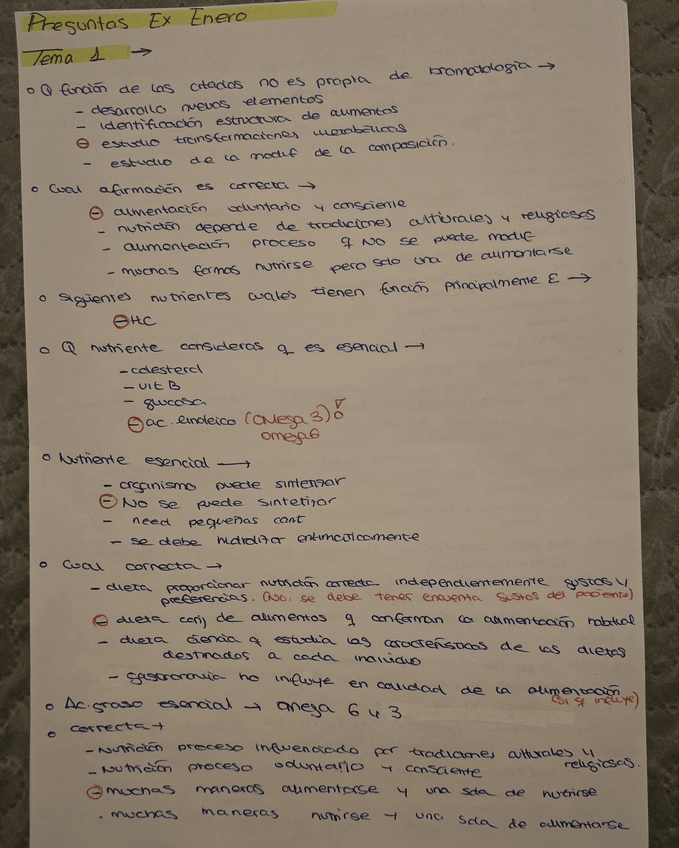 Preguntas Ex Enero
Tema 1 →
o Q función de las citadas no es propia de bromatología →
- desarrollo nuevos elementos
- identificación estructura de alimentos
- estudio transformaciones metabólicas
- estudio de la modif de la composición.
o Cual afirmación es correcta →
- alimentación voluntario y consciente
- nutrición depende de tradiciones culturales y religiosos
- alimentación proceso q NO se puede modif
- muchas formas nutrirse pero solo una de alimentarse
o Siguientes nutrientes cuales tienen función principalmente E →
- HC
o Q nutriente consideras q es esencial →
- colesterol
- vit B
- glucosa
- ac. linoleico (Omega 3)
omega 6
o Nutriente esencial →
- organismo puede sintetizar
- No se puede sintetizar
- need pequeñas cant
- se debe hidrolizar enzimáticamente
o Cual correcta →
- dieta proporcionar nutrición correcta independientemente gustos y
preferencias. (No, se debe tener encuenta gustos del paciente)
- dieta conj de alimentos q conforman la alimentación habitual
- dieta ciencia q estudia las características de las dietas
destinados a cada individuo
- gastronomia no influye en calidad de la alimentación
(si se influye)
o Ac. graso esencial → omega 6 y 3
o correcta →
- Nutrición proceso influenciado por tradiciones culturales y
religiosos.
- Nutrición proceso voluntario y consciente
- muchas maneras alimentarse y una sola de nutrirse
. muchas maneras nutrirse y una sola de alimentarse